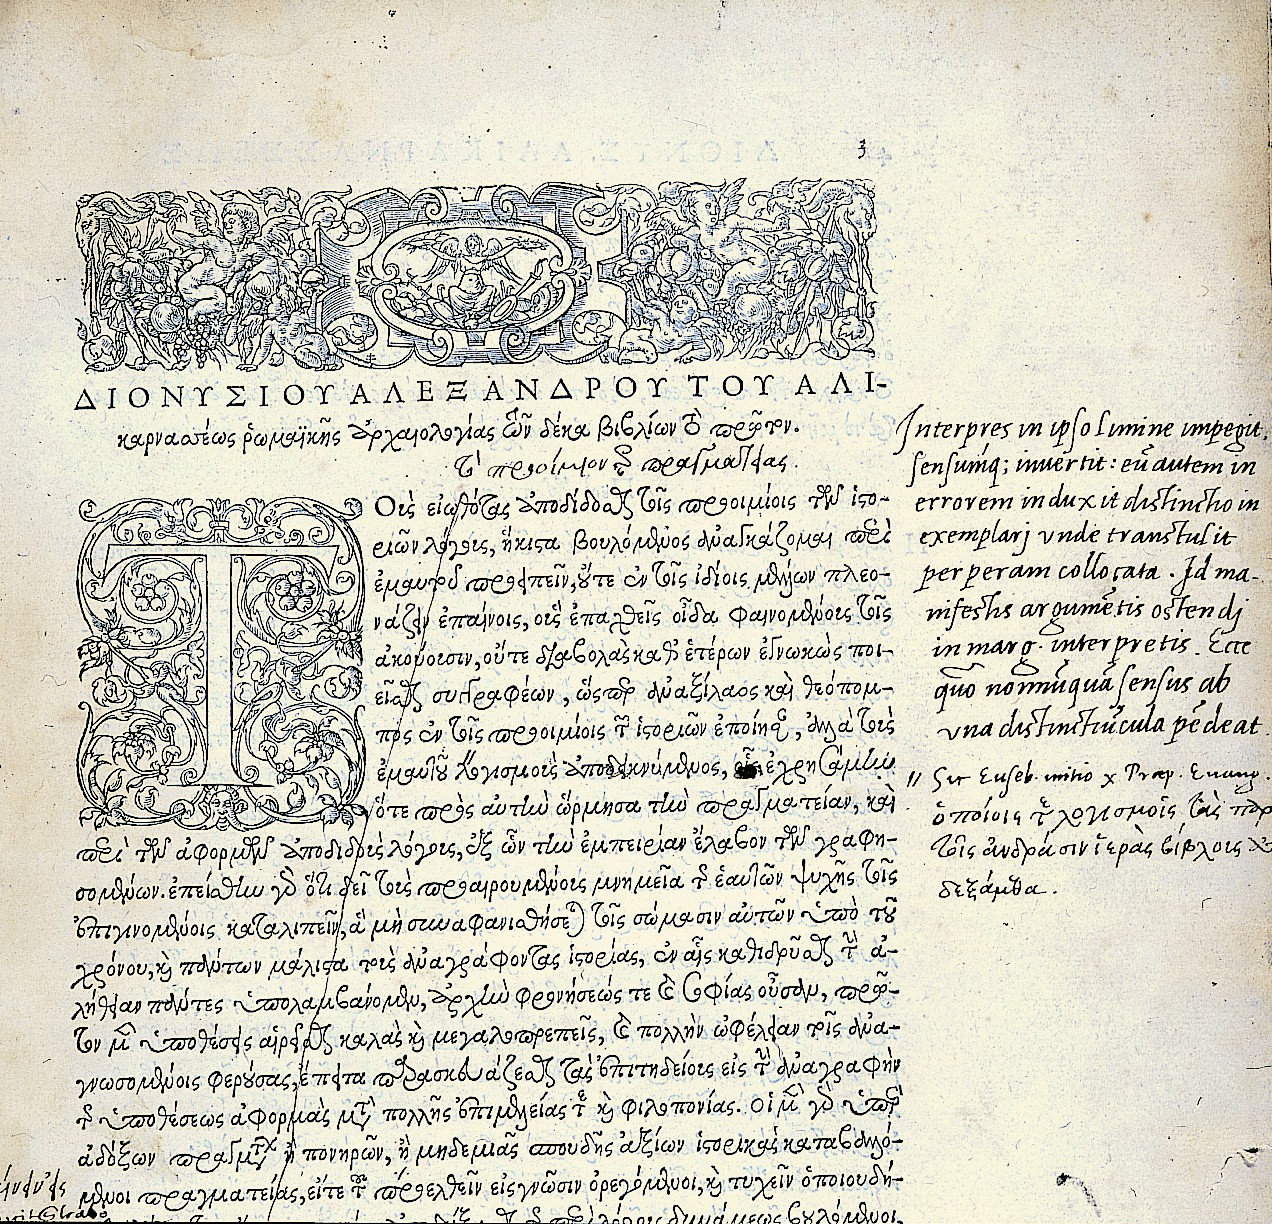 3
ΔΙΟΝΥΣΙΟΥ ΑΛΕΞΑΝΔΡΟΥ ΤΟΥ ΑΛΙ-
καρνασέως ῥωμαϊκῆς ἀρχαιολογίας τῶν δέκα βιβλίων τὸ πρῶτον.
Τὸ προοίμιον τῆς πραγματείας.
ΤΟὺς εἰωθότας ἀποδίδοσθαι τοῖς προοιμίοις τῶν ἱστο-
ριῶν λόγους, ἥκιστα βουλόμενος ἀναγκάζομαι περὶ
ἐμαυτοῦ προειπεῖν, οὔτε ἐν τοῖς ἰδίοις μέλλων πλεο-
νάζειν ἐπαίνοις, οὓς ἐπαχθεῖς οἶδα φαινομένους τοῖς
ἀκούουσιν, οὔτε διαβολὰς καθ' ἑτέρων ἐγνωκὼς ποι-
εῖσθαι συγγραφέων, ὥσπερ ἀναξίλαος καὶ θεόπομ-
πος ἐν τοῖς προοιμίοις τῶν ἱστοριῶν ἐποίησαν, ἀλλὰ τοὺς
ἐμαυτοῦ λογισμοὺς ἀποδεικνύμενος, οἷς ἐχρησάμην
ὅτε πρὸς αὐτὴν ὥρμησα τὴν πραγματείαν, καὶ
περὶ τῶν ἀφορμῶν ἀποδιδοὺς λόγους, ἐξ ὧν τὴν ἐμπειρίαν ἔλαβον τῶν γραφη-
σομένων. ἐπείσθην γὰρ ὅτι δεῖ τοὺς προαιρουμένους μνημεῖα τῆς ἑαυτῶν ψυχῆς τοῖς
ἐπιγινομένοις καταλιπεῖν, ἃ μὴ συναφανισθήσεται τοῖς σώμασιν αὐτῶν ὑπὸ τοῦ
χρόνου, καὶ πάντων μάλιστα τοὺς ἀναγράφοντας ἱστορίας, ἐν αἷς καθιδρῦσθαι τὴν ἀ-
λήθειαν πάντες ὑπολαμβάνομεν, ἀρχὴν φρονήσεώς τε καὶ σοφίας οὖσαν, πρῶ-
τον μὲν ὑποθέσεις αἱρεῖσθαι καλὰς καὶ μεγαλοπρεπεῖς, καὶ πολλὴν ὠφέλειαν τοῖς ἀνα-
γνωσομένοις φερούσας, ἔπειτα παρασκευάζεσθαι τὰς ἐπιτηδείους εἰς τὴν ἀναγραφὴν
τῆς ὑποθέσεως ἀφορμὰς μετὰ πολλῆς ἐπιμελείας τε καὶ φιλοπονίας. οἱ μὲν γὰρ ὑπὲρ
ἀδόξων πραγμάτων ἢ πονηρῶν, ἢ μηδεμιᾶς σπουδῆς ἀξίων ἱστορικὰς καταβαλό-
μενοι πραγματείας, εἴτε τοῦ προελθεῖν εἰς γνῶσιν ὀρεγόμενοι, καὶ τυχεῖν ὁποιουδή-
Interpres in ipso limine impegit,
sensumq; invertit: eū autem in
errorem induxit distinctio in
exemplarj vnde transtulit
perperam collocata. Id ma-
nifestis argumētis ostendj
in marg. interpretis. Ecce
quo nonnūquā sensus ab
vna distinctiūcula pēdeat.
" Sic Euseb. initio x Præp. Euang.
ὁποίοις τε λογισμοῖς τὰς παρ
τοῖς ἀνδράσιν ἱερὰς βίβλοις
δεξάμεθα.